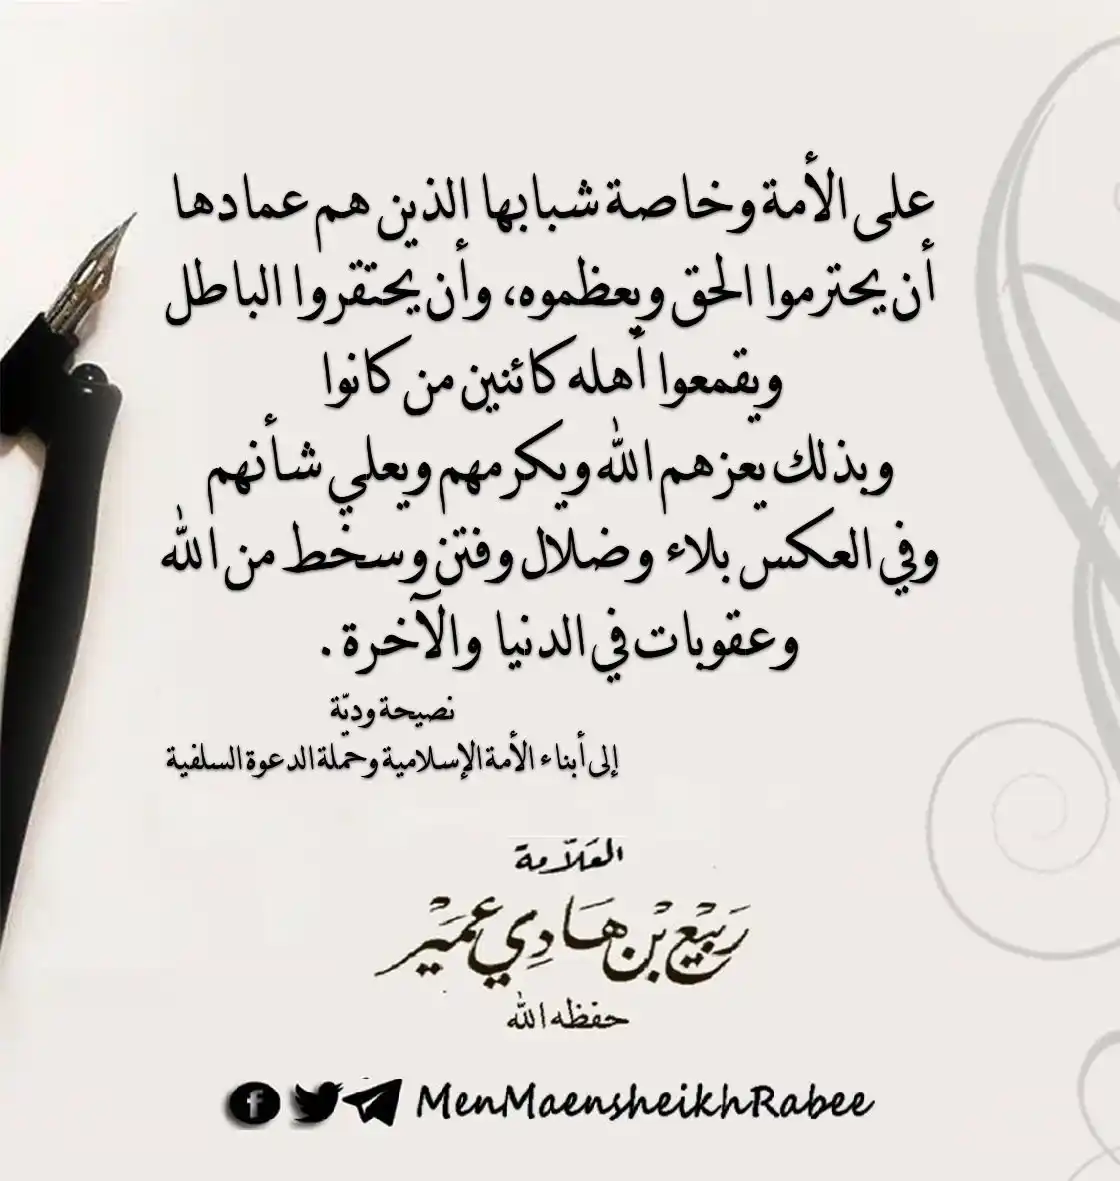 على الأمة وخاصة شبابها الذين هم عمادها
أن يحترموا الحق ويعظموه، وأن يحتقروا الباطل
ويقمعوا أهله كائنين من كانوا
وبذلك يعزهم الله ويكرمهم ويعلي شأنهم
وفي العكس بلاء وضلال وفتن وسخط من الله
وعقوبات في الدنيا والآخرة .
نصيحة وديّة
إلى أبناء الأمة الإسلامية وحملة الدعوة السلفية
العَلاَّمة
رَبيْع بْن هَادِي عمَيْر
حفظه الله
MenMaensheikhRabee